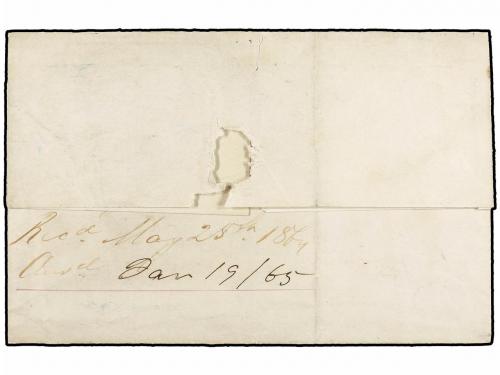 Recd May 25th 1864
Ansd Jan 19/65